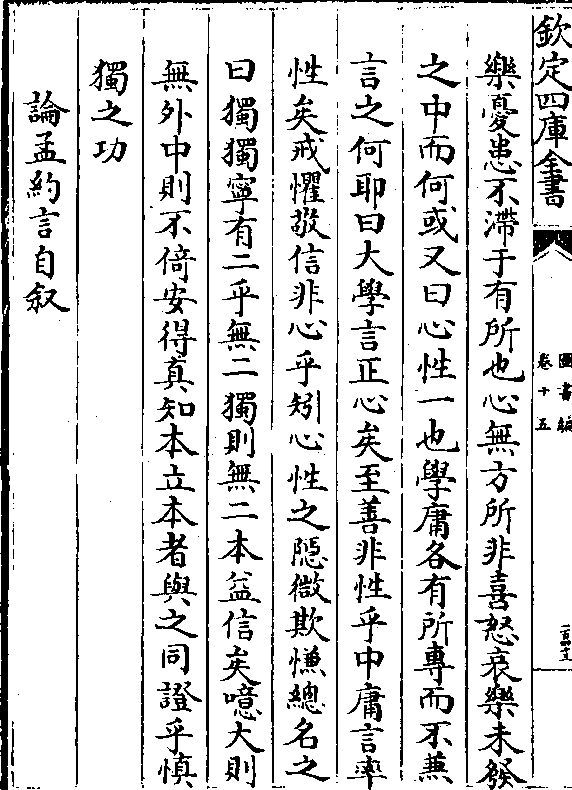 欽定四庫全書
圖書編
卷十五
樂憂患不滯于有所也心無方所非喜怒哀樂未發
之中而何或又曰心性一也學庸各有所專而不兼
言之何耶曰大學言正心矣至善非性乎中庸言率
性矣戒懼敬信非心乎矧心性之隱微欺慊總名之
曰獨獨寧有二乎無二獨則無二本益信矣噫大則
無外中則不倚安得真知本立本者與之同證乎慎
獨之功
論孟約言自叙